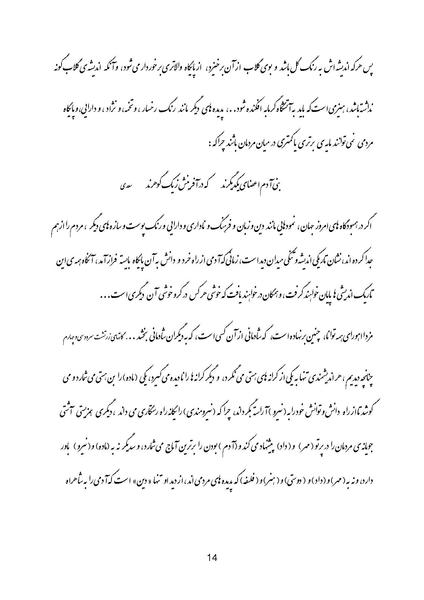 پس هرکه اندیشه‌اش به رنگ گل باشد و بوی گلاب از آن برخیزد، از پایگاه والاتری برخوردار می‌شود، و آنکه اندیشه‌ی گلاب‌گونه
نداشته باشد، هیزمی است که باید به آتشگاه گرمابه افکنده شود... پدیده‌های دیگر مانند رنگ رخسار، و تخمه و نژاد، و دارایی و پایگاه
مردمی نمی‌توانند مایه‌ی برتری یا کمتری در میان مردمان باشند چراکه :
بنی آدم اعضای یکدیگرند که در آفرینش ز یک گوهرند سعدی
اگر در هبودگاه‌های امروز جهان، نمودهایی مانند دین و زبان و فرهنگ و ناداری و دارایی و رنگ پوست و سازه‌های دیگر، مردم را از هم
جدا کرده‌اند، نشان تاریکی اندیشه و تنگی میدان دید است، زمانی که آدمی از راه خرد و دانش به آن پایگاه بایسته فراز آمد، آنگاه همه‌ی این
تاریک اندیشی‌ها پایان خواهند گرفت، و همگان در خواهند یافت که خوشی هر کس در گرو خوشی آن دیگری است...
مزدا اهورای همه توانا، چنین برنهاده است، که شادمانی از آن کسی است، که به دیگران شادمانی بخشد ... گاتهای زرتشت سرود سی و چهارم
چنانچه دیدیم، هر اندیشمندی تنها به یکی از کرانه‌های هستی می‌نگرد، و دیگر کرانه‌ها را نادیده می‌گیرد، یکی (ماده) را بن هستی می‌شمارد و می
کوشد تا از راه دانش و توانش خود را به (نیرو) آراسته گرداند، چرا که (نیرومندی) را یگانه راه رستگاری می‌داند، دیگری همزیستی آشتی
جویانه‌ی مردمان را در پرتو (مهر) و (داد) پیشنهاد می‌کند و (آدم) بودن را برترین آماج می‌شمارد، و سدیگر نه به (ماده) و (نیرو) باور
دارد، و نه به (مهر) و (داد) و (دوستی) و (هنر) و (فلسفه) که پدیده‌های مردمی‌اند، از دید او تنها «دین» است که آدمی را به شاهراه
14